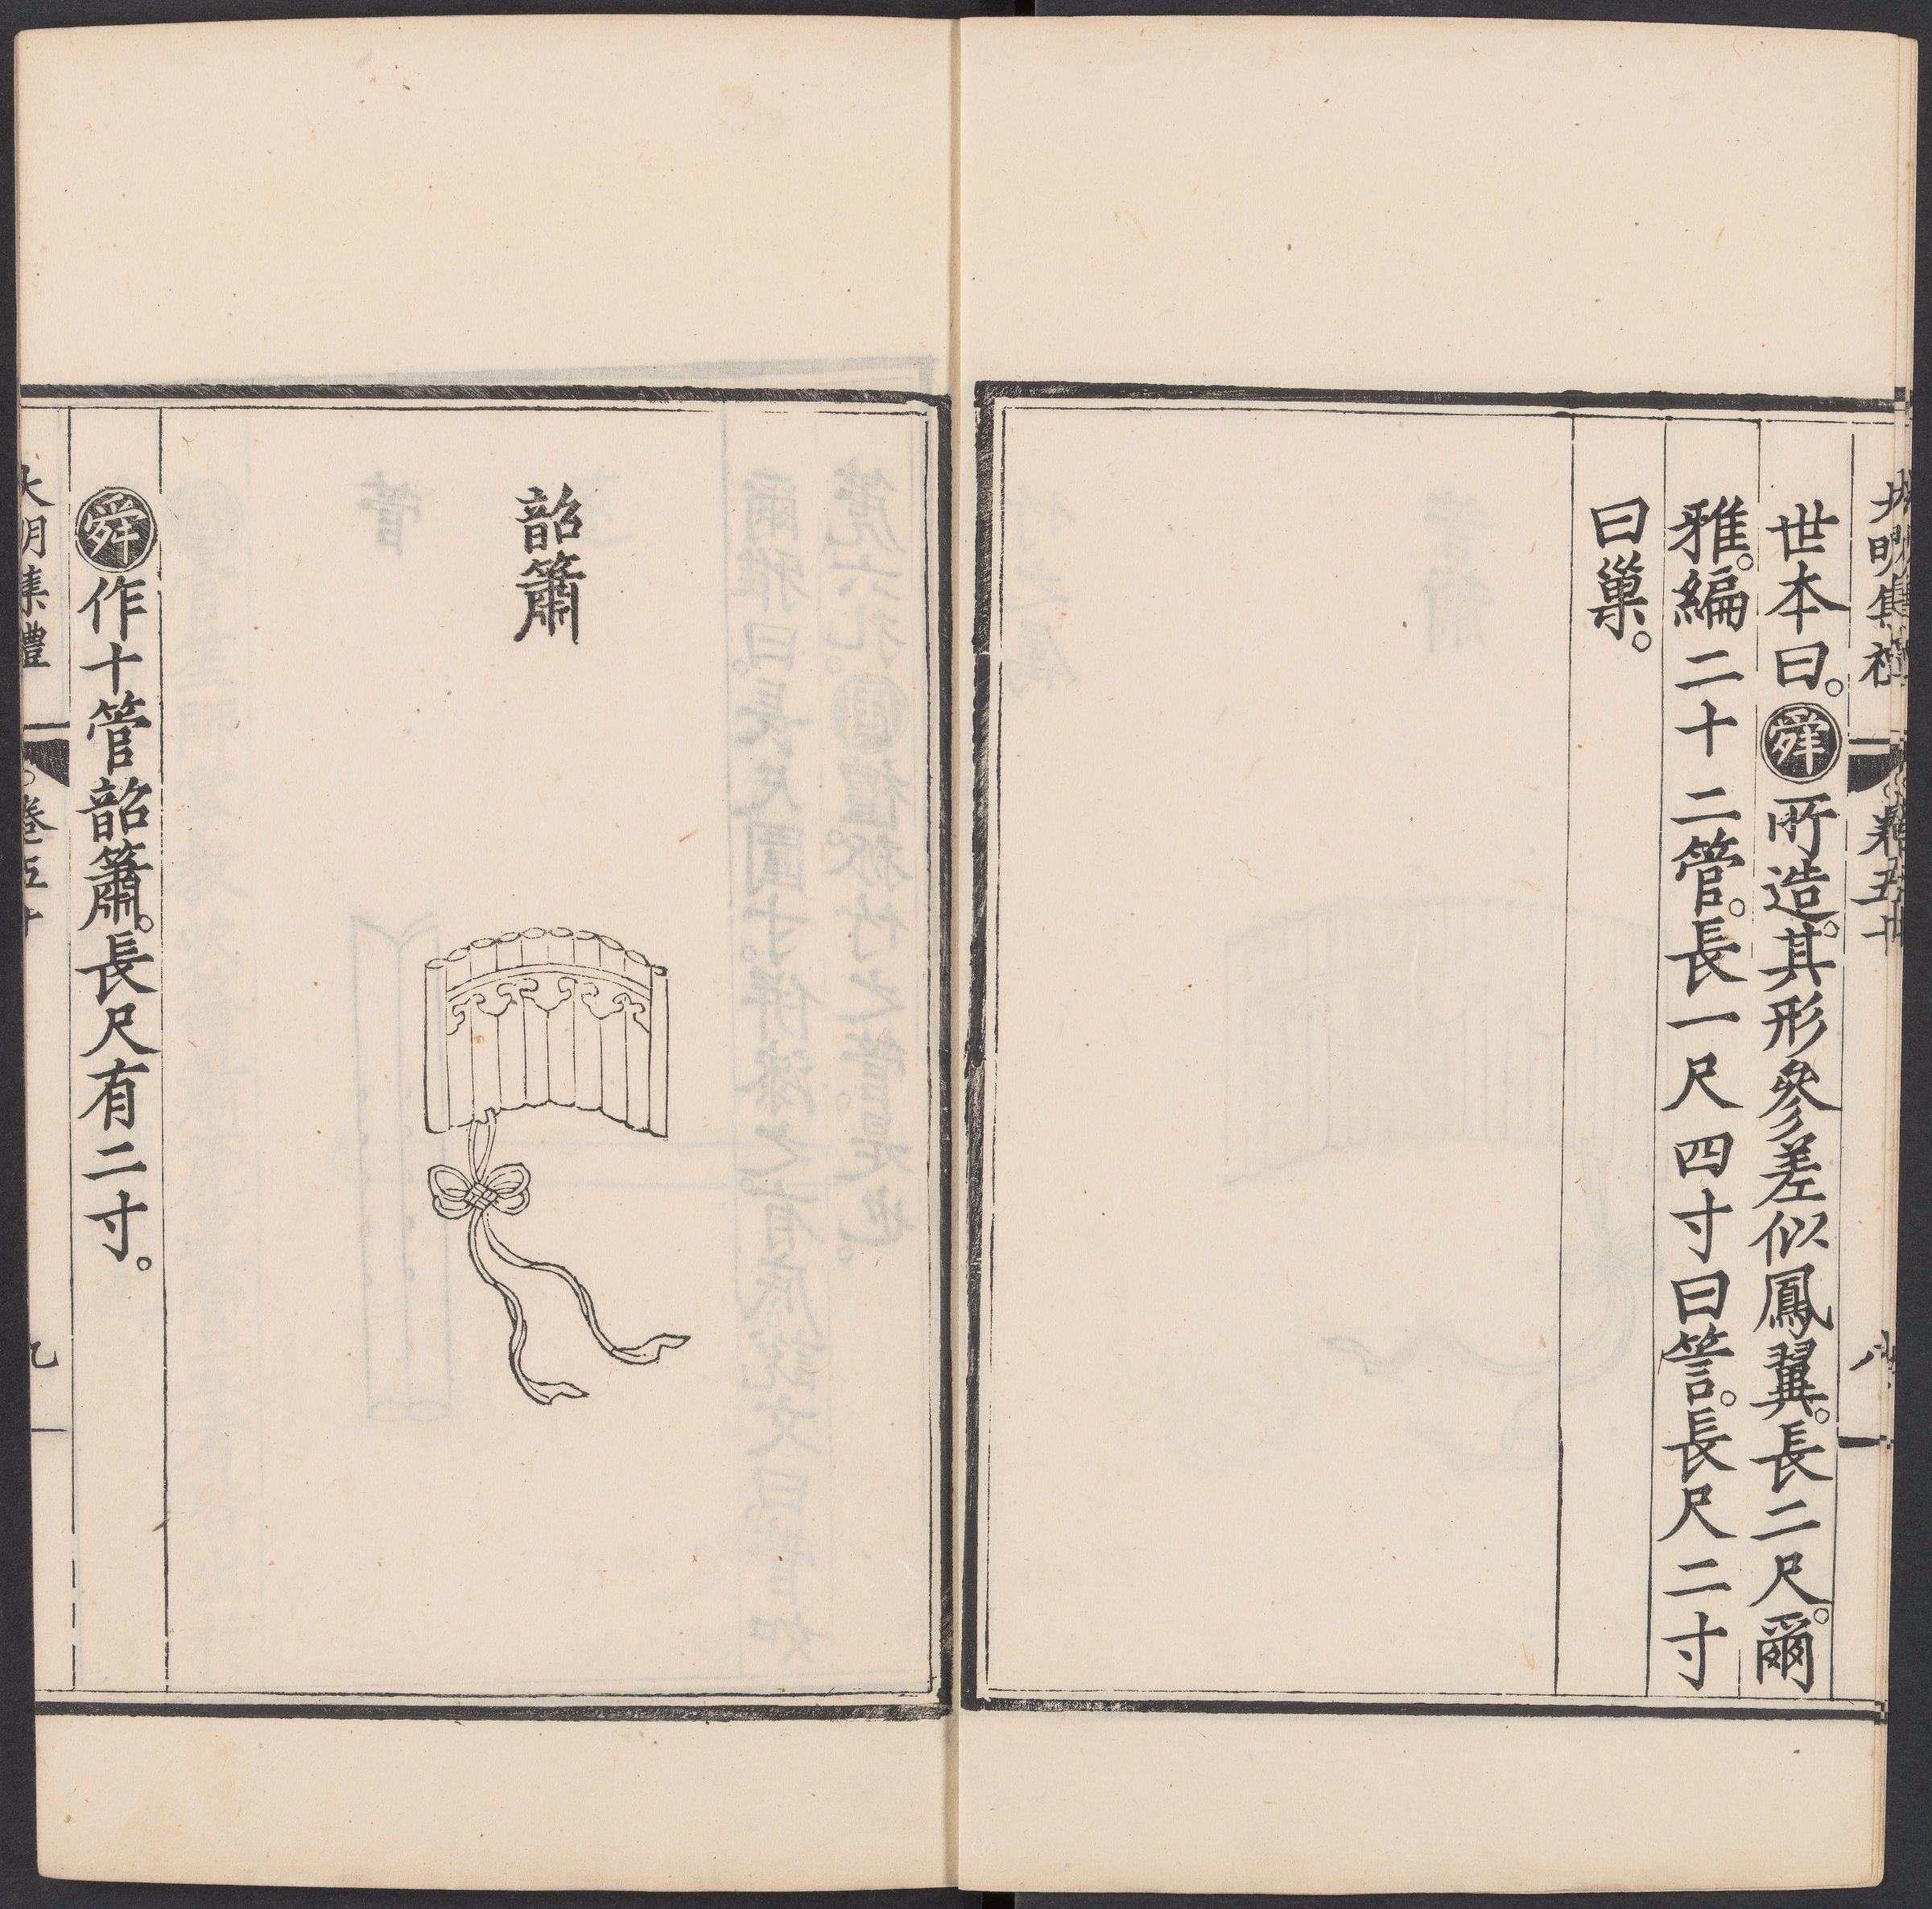 大明集禮 卷五十 八
世本曰。舜所造。其形參差似鳳翼。長二尺。爾
雅。編二十二管。長一尺四寸曰䇾。長尺二寸
曰巢。
韶簫
舜作十管韶簫。長尺有二寸。
大明集禮 卷五十 九